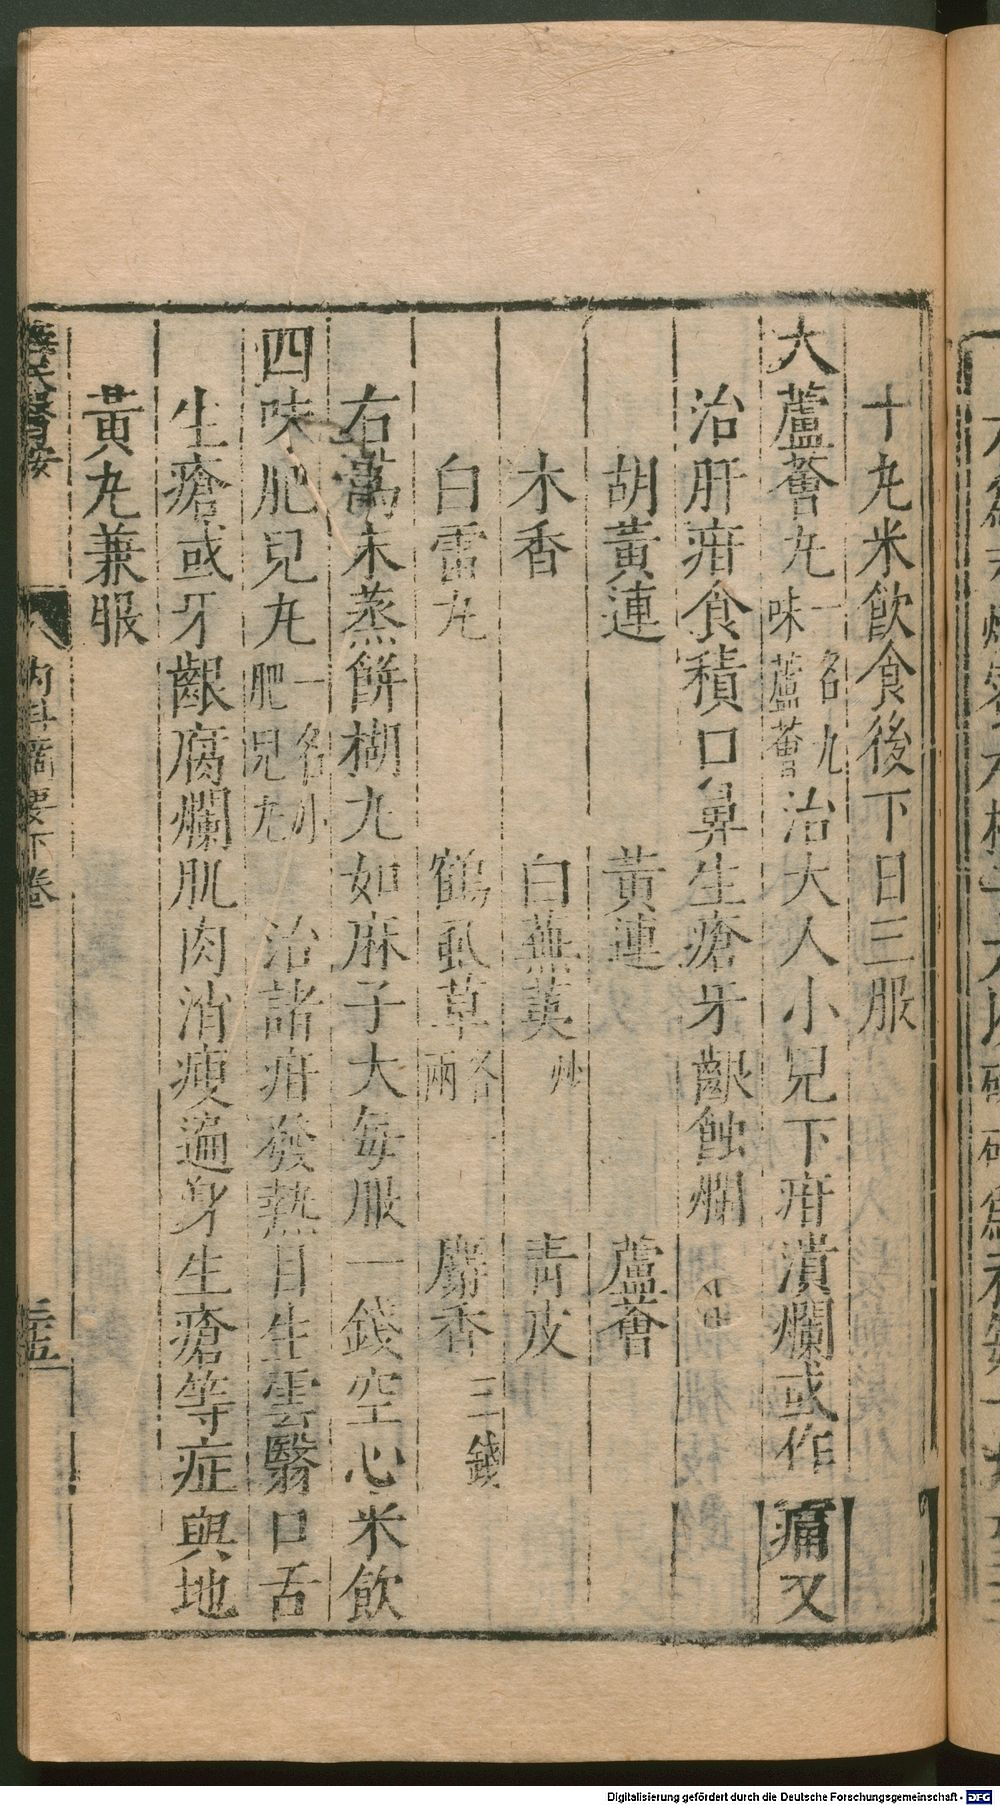 十丸米飲食後下日三服
大蘆薈丸一名九味蘆薈治大人小兒下疳潰爛或作痛又
治肝疳食積口鼻生瘡牙齦蝕爛
胡黃連 黃連 蘆薈
木香 白蕪荑炒 青皮
白雷丸 鶴虱草各一兩 麝香三錢
右爲末蒸餅糊丸如麻子大每服一錢空心米飲
四味肥兒丸一名小肥兒丸 治諸疳發熱目生雲翳口舌
生瘡或牙齦腐爛肌肉消瘦遍身生瘡等症與地
黃丸兼服
醫按 內科摘要下卷
Digitalisierung gefördert durch die Deutsche Forschungsgemeinschaft - DFG